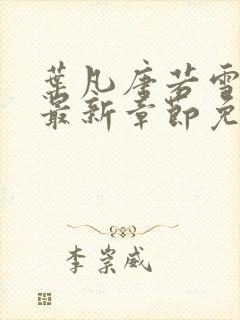 葉凡唐若雪
最新章節免
李崇威